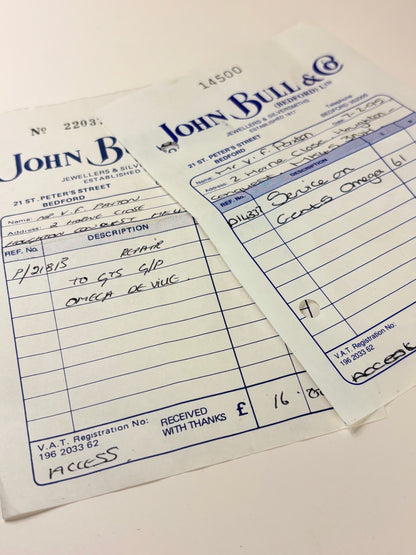 Nº 2203
JOHN BULL
JEWELLERS & SILV
ESTABLISHED
21 ST. PETER'S STREET
BEDFORD
Name: MR V. F. PAXTON
Address: 2 HOME CLOSE
HOUGHTON CONQUEST
REF. No.
DESCRIPTION
P/21813
REPAIR
TO GTS G/P
OMEGA DE VILLE
V.A.T. Registration No:
196 2033 62
RECEIVED
WITH THANKS
£
16
ACCESS
14500
JOHN BULL & Co
(BEDFORD) LTD
JEWELLERS & SILVERSMITHS
ESTABLISHED 1817
21 ST. PETER'S STREET
BEDFORD
Telephone
BEDFORD
Name: Mr V. F. Paxton
Address: 2 Home Close Houghton
Conquest
REF. No.
DESCRIPTION
Service on
Gents Omega
61
V.A.T. Registration No:
196 2033 62
ACCESS